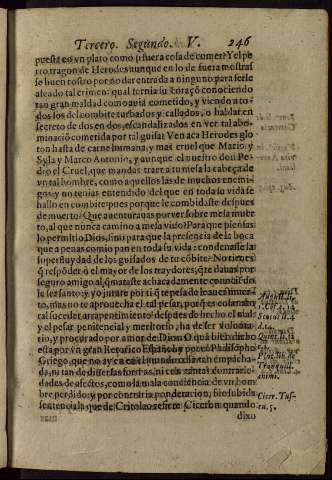 Tercero. Segundo. V. 246
puesta en vn plato como si fuera cosa de comer? Y el pe
rro tragon de Herodes aunque en lo de fuera mostras
se buen rostro por no dar entrada a ninguno para serle
afeado tal crimen: qual ternia su coraçõ conociendo
tan gran maldad como auia cometido, y viendo a to-
dos los del combite turbados y callados, o hablar en
secreto de dos en dos, escandalizados en ver tal abo-
minació cometida por tal guisa? Ven aca Herodes glo
ton hasta de carne humana, y mas cruel que Mario, y
Syla y Marco Antonio, y aunque el nuestro don Pe-
dro el Cruel, que mandas traer a tu mesa la cabeça de
vn tal hombre, como aquellos las de muchos enemi-
gos, y no tenias entendido del que en toda su vida se
hallo en combite: pues porque le combidaste despues
de muerto? Que auenturauas por ver sobre mesa muer
to, al que nunca camino a mesa viuo? Para que piensas
lo permitio Dios, sino para que la presencia de la boca
que a penas comio pan en toda su vida: condenasse la
superfluydad de los guisados de tu cõbite? No tienes
q respõder o el mayor de los traydores, que dauas por
seguro amigo, al q mataste
le ser santo, y
tas, mas no te aprouecha el tal pesar, porque
al suceder arrepentimiento despues de hecho el mal:
y el pesar penitencial y meritorio, ha de ser volunta-
rio, y procurado por amor de Dios. O quã bien dicho
esta por vn gran Retorico Español, y por vn Philosopho
Griego, que no ay en el mundo
da, ni tan de diuersas formas, ni con
dades de afectos, como la mala conciencia de vn hom
bre perdido: y por contraria ponderacion, bien subida
sentencia la que de Critolao refiere Ciceron quando
dixo
August. li.
d.ta.
Quint. li.
Plat. lib. de
Tranquill.
animi.
Cicer. Tus-
cu. 5.